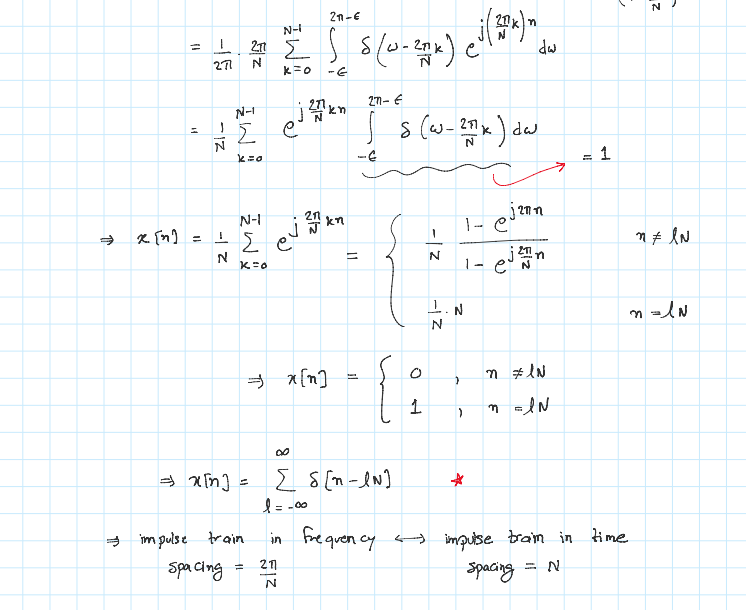 N )
= 1/2π · 2π/N N-1 Σ k=0 ∫ 2π-ϵ -ϵ δ(ω - 2π/N k) e^{j(2π/N k)n} dω
= 1/N N-1 Σ k=0 e^{j 2π/N kn} ∫ 2π-ϵ -ϵ δ(ω - 2π/N k) dω
= 1
⇒ x[n] = 1/N N-1 Σ k=0 e^{j 2π/N kn} = { 1/N (1 - e^{j2πn})/(1 - e^{j 2π/N n}) n ≠ lN
1/N · N n = lN
⇒ x[n] = { 0 , n ≠ lN
1 , n = lN
⇒ x[n] = ∞ Σ l=-∞ δ[n-lN] ★
⇒ impulse train in frequency ⟷ impulse train in time
spacing = 2π/N spacing = N